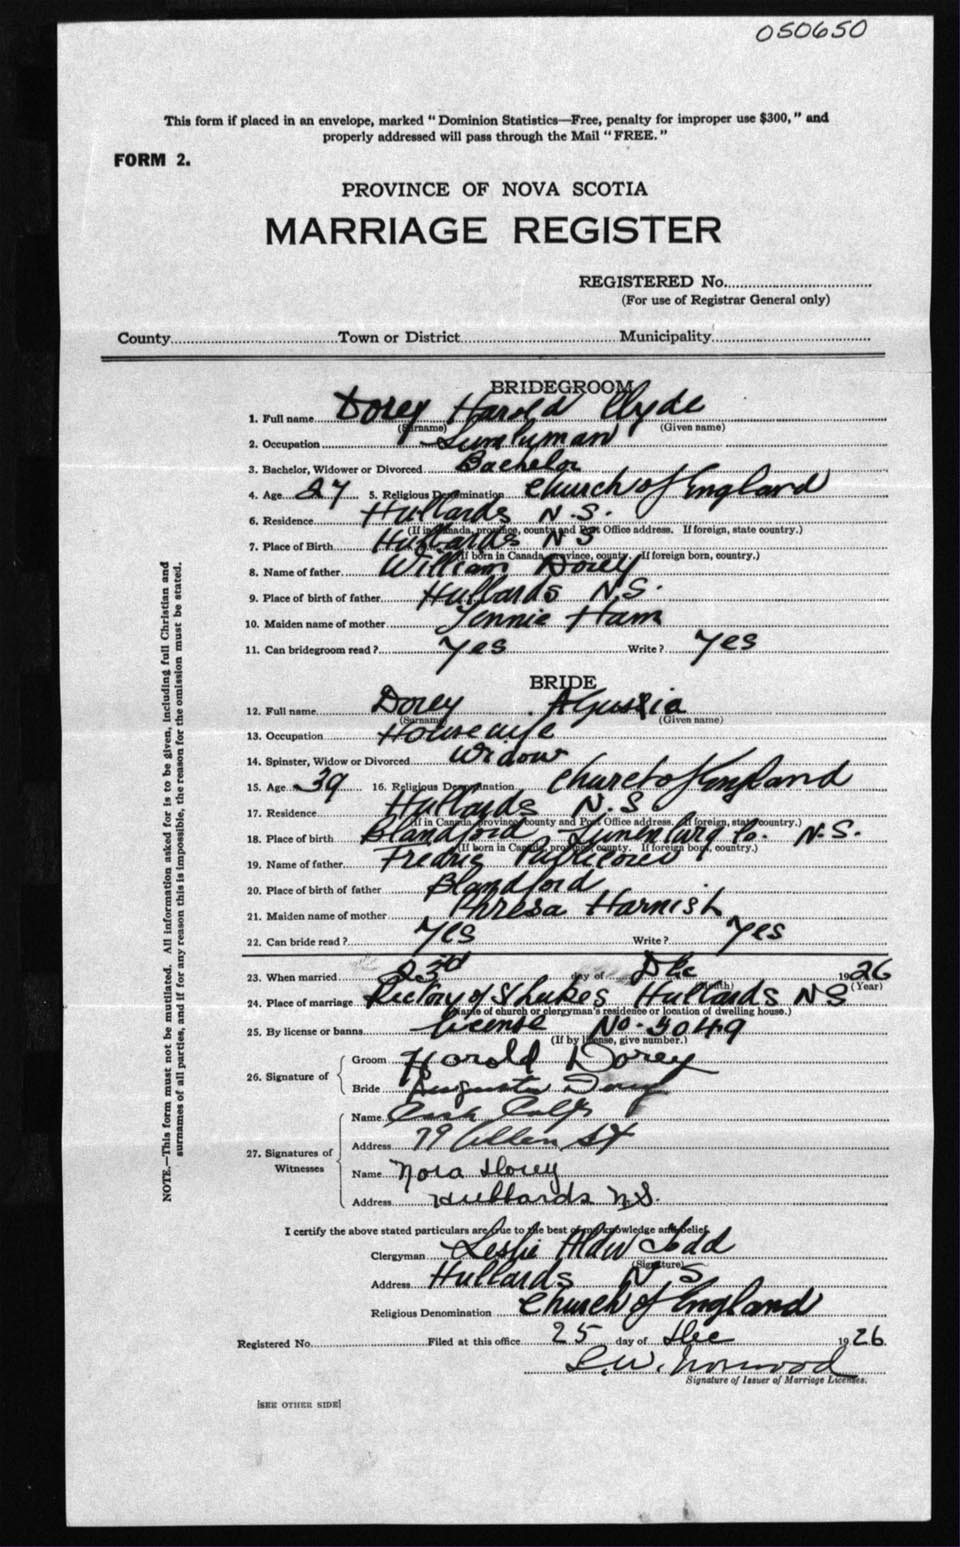 050650
This form if placed in an envelope, marked "Dominion Statistics—Free, penalty for improper use $300," and
properly addressed will pass through the Mail "FREE."
FORM 2.
PROVINCE OF NOVA SCOTIA
MARRIAGE REGISTER
REGISTERED No.
(For use of Registrar General only)
County Town or District Municipality
BRIDEGROOM
1. Full name Dorey Harold Clyde
(Surname) (Given name)
2. Occupation
3. Bachelor, Widower or Divorced Bachelor
4. Age 27 5. Religious Denomination Church of England
6. Residence Hubbards N.S.
(If in Canada, province, county and Post Office address. If foreign, state country.)
7. Place of Birth Hubbards N S
(If born in Canada, province, county. If foreign born, country.)
8. Name of father William Dorey
9. Place of birth of father Hubbards N.S.
10. Maiden name of mother Jennie Ham
11. Can bridegroom read? Yes Write? Yes
BRIDE
12. Full name Dorey
(Surname) (Given name)
13. Occupation Housewife
14. Spinster, Widow or Divorced Widow
15. Age 39 16. Religious Denomination Church of England
17. Residence Hubbards N.S
(If in Canada, province, county and Post Office address. If foreign, state country.)
18. Place of birth Blandford Lunenburg Co. N.S.
(If born in Canada, province, county. If foreign born, country.)
19. Name of father Fredric
20. Place of birth of father Blandford
21. Maiden name of mother Harnish
22. Can bride read? Yes Write? Yes
23. When married 23rd day of Dec 1926
(Month) (Year)
24. Place of marriage Rectory of St Lukes Hubbards N S
(Name of church or clergyman's residence or location of dwelling house.)
25. By license or banns License No. 3049
(If by license, give number.)
26. Signature of Groom Harold Dorey
Bride Augusta Dorey
27. Signatures of Witnesses Name
Address 79 Allen St
Name Nora Dorey
Address Hubbards N.S.
I certify the above stated particulars are true to the best of my knowledge and belief.
Clergyman Leslie Todd
(Signature)
Address Hubbards N S
Religious Denomination Church of England
Registered No. Filed at this office 25 day of Dec 1926
L.W. Norwood
Signature of Issuer of Marriage Licenses.
[SEE OTHER SIDE]
NOTE.—This form must not be mutilated. All information asked for is to be given, including full Christian and
surnames of all parties, and if for any reason this is impossible, the reason for the omission must be stated.